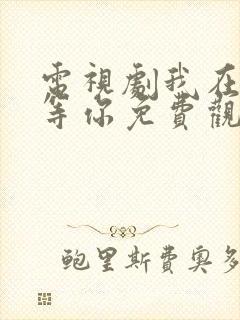 電視劇我在
等你免費觀
鮑里斯費奧多